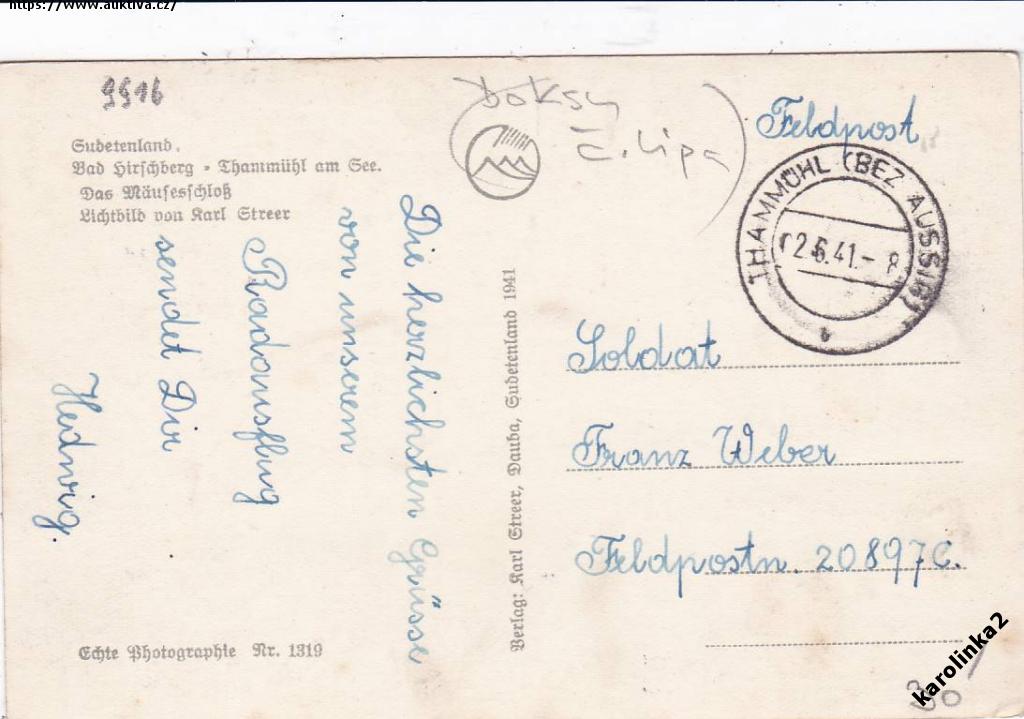 https://www.auktiva.cz/
9916
Doksy
č. Lípa
Feldpost
Sudetenland.
Bad Hirschberg - Thammühl am See.
Das Mäuseschloß
Lichtbild von Karl Streer
THAMMÜHL (BEZ AUSSIG)
2.6.41.- 8
a
Die herzlichsten Grüsse
von unserem
Radausflug
sendet Dir
Hedwig.
Verlag: Karl Streer, Dauba, Sudetenland 1941
Soldat
Franz Weber
Feldpostn. 20897C.
Echte Photographie Nr. 1319
karolinka2